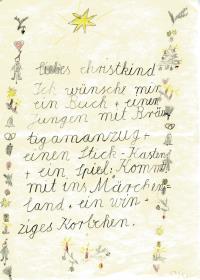 liebes christkind
Ich wünsche mir
ein Buch + einen
Jungen mit Bräu
tigamanzug +
einen Stick-Kasten
+ ein Spiel: Komm
mit ins Märchen-
land + ein win-
ziges Korbchen.